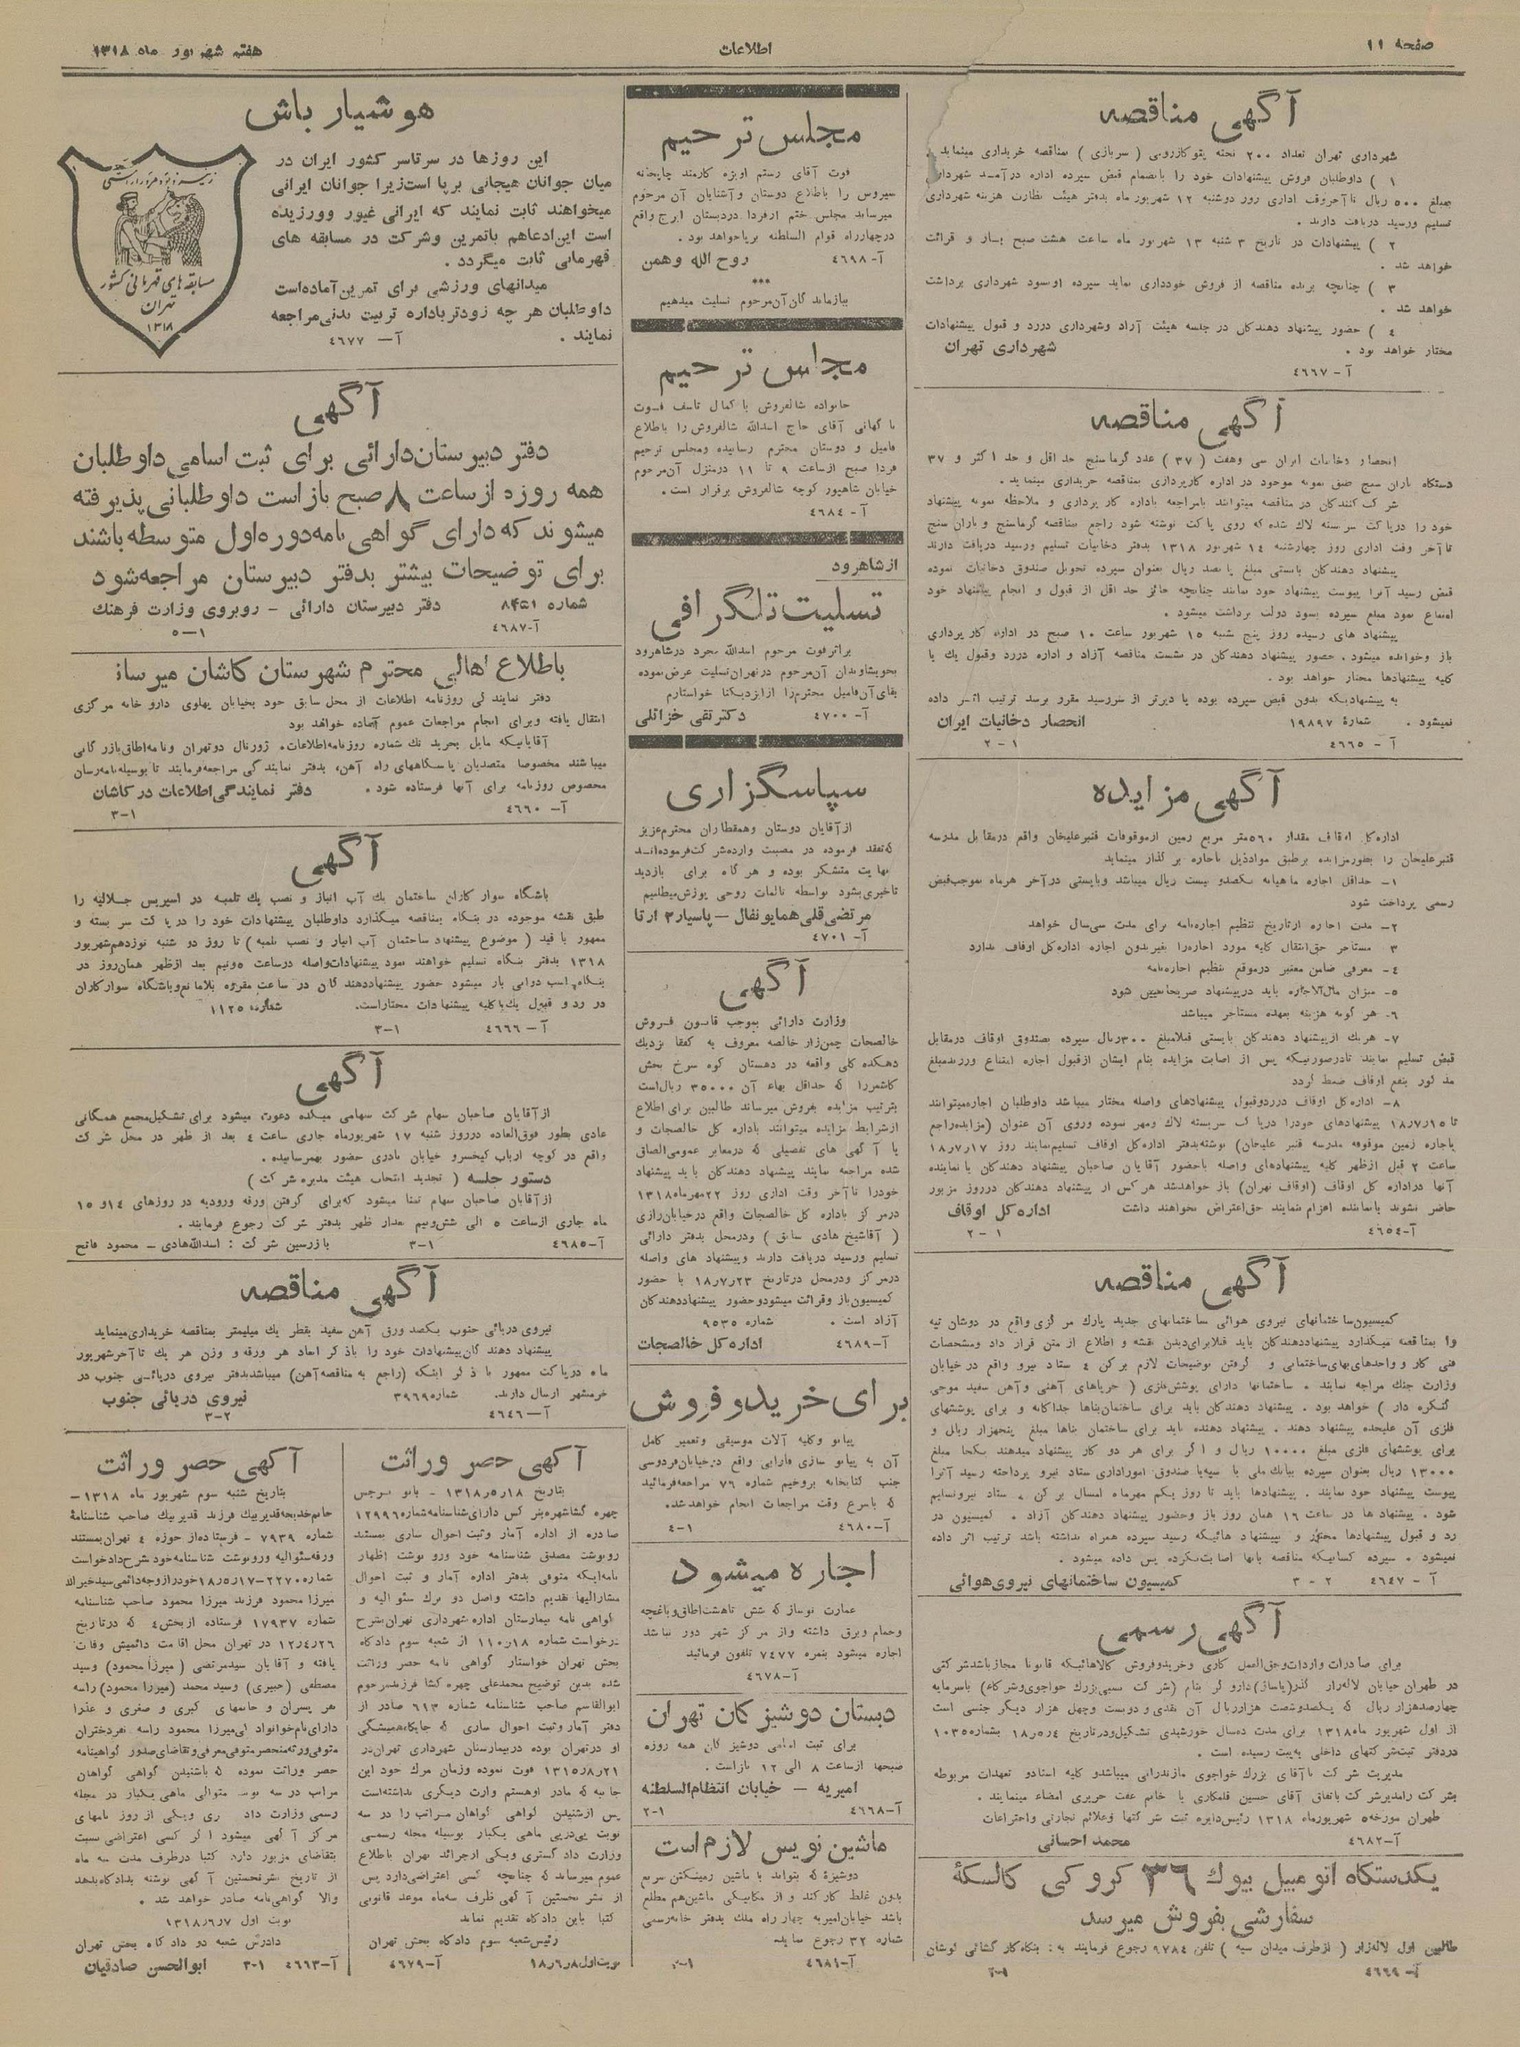 صفحه ۱۱
اطلاعات
هفتم شهریور ماه ۱۳۱۸
آگهی مناقصه
شهرداری تهران تعداد ۲۰۰ تخته پتو کازرونی ( سربازی ) بمناقصه خریداری مینماید .
۱ ) داوطلبان فروش پیشنهادات خود را بانضمام قبض سپرده اداره درآمد شهرداری
بمبلغ ۵۰۰ ریال تا آخروقت اداری روز دوشنبه ۱۲ شهریور ماه بدفتر هیئت نظارت هزینه شهرداری
تسلیم ورسید دریافت دارند.
۲ ) پیشنهادات در تاریخ ۳ شنبه ۱۳ شهریور ماه ساعت هشت صبح باز و قرائت
خواهد شد .
۳ ) چنانچه برنده مناقصه از فروش خودداری نماید سپرده اوبسود شهرداری برداشت
خواهد شد .
۴ ) حضور پیشنهاد دهندگان در جلسه هیئت آزاد وشهرداری دررد و قبول پیشنهادات
مختار خواهد بود . شهرداری تهران
آ - ۴۶۶۷
آگهی مناقصه
انحصار دخانیات ایران سی وهفت ( ۳۷ ) عدد گرماسنج حد اقل و حد اکثر و ۳۷
دستگاه باران سنج طبق نمونه موجود در اداره کارپردازی بمناقصه خریداری مینماید.
شرکت کنندگان در مناقصه میتوانند بامراجعه باداره کار پردازی و ملاحظه نمونه پیشنهاد
خود را درپاکت سربسته لاك شده که روی پاکت نوشته شود راجع بمناقصه گرماسنج و باران سنج
تا آخر وقت اداری روز چهارشنبه ۱۴ شهریور ۱۳۱۸ بدفتر دخانیات تسلیم ورسید دریافت دارند
پیشنهاد دهندگان بایستی مبلغ پانصد ریال بعنوان سپرده تحویل صندوق دخانیات نموده
قبض رسید آنرا پیوست پیشنهاد خود نمایند چنانچه حائز حد اقل از قبول و انجام پیشنهاد خود
امتناع نمود مبلغ سپرده بسود دولت برداشت میشود .
پیشنهاد های رسیده روز پنج شنبه ۱۵ شهریور ساعت ۱۰ صبح در اداره کارپردازی
باز وخوانده میشود. حضور پیشنهاد دهندگان در نشست مناقصه آزاد و اداره دررد وقبول یك یا
کلیه پیشنهادها مختار خواهد بود .
به پیشنهادیکه بدون قبض سپرده بوده یا دیرتر از سررسید مقرر برسد ترتیب اثر داده
نمیشود . شمارهٔ ۱۹۸۹۷ انحصار دخانیات ایران
آ - ۴۶۶۵ ۱ - ۲
آگهی مزایده
اداره کل اوقاف مقدار ۵۶۰ متر مربع زمین ازموقوفات قنبرعلیخان واقع درمقابل مدرسه
قنبرعلیخان را بطورمزایده برطبق موادذیل باجاره بر گذار مینماید
۱- حداقل اجاره ماهیانه یکصدو بیست ریال میباشد وبایستی درآخر هرماه بموجب قبض
رسمی پرداخت شود
۲- مدت اجاره ازتاریخ تنظیم اجاره نامه برای مدت سی سال خواهد
۳ مستاجر حق انتقال کلیه مورد اجاره را بغیر بدون اجازه اداره کل اوقاف ندارد
۴- معرفی ضامن معتبر درموقع تنظیم اجاره نامه
۵- میزان مال الاجاره باید درپیشنهاد صریحا معین شود
۶- هر گونه هزینه بعهده مستاجر میباشد
۷- هریك ازپیشنهاد دهندگان بایستی قبلا مبلغ ۳۰۰ ریال سپرده بصندوق اوقاف درمقابل
قبض تسلیم نمایند تادرصورتیکه پس از اصابت مزایده بنام ایشان ازقبول اجاره امتناع ورزند مبلغ
مذکور بنفع اوقاف ضبط گردد
۸- اداره کل اوقاف درردوقبول پیشنهادهای واصله مختار میباشد داوطلبان اجاره میتوانند
تا ۱۸٫۷٫۱۵ پیشنهادهای خودرا درپاکت سربسته لاك ومهر نموده وروی آن عنوان (مزایده راجع
باجاره زمین موقوفه مدرسه قنبر علیخان) نوشته بدفتر اداره کل اوقاف تسلیم نمایند روز ۱۸٫۷٫۱۷
ساعت ۲ قبل ازظهر کلیه پیشنهادهای واصله باحضور آقایان صاحبان پیشنهاد دهندگان یا نماینده
آنها دراداره کل اوقاف (اوقاف تهران) باز خواهدشد هرکس از پیشنهاد دهندگان درروز مزبور
حاضر نشوند یانماینده اعزام ننمایند حق اعتراض نخواهند داشت اداره کل اوقاف
آ- ۴۶۵۴ ۱ - ۲
آگهی مناقصه
کمیسیون ساختمانهای نیروی هوائی ساختمانهای جدید پارك مرکزی واقع در دوشان تپه
را بمناقصه میگذارد پیشنهاددهندگان باید قبلا برای دیدن نقشه و اطلاع از متن قرار داد ومشخصات
فنی کار و واحدهای بهای ساختمانی و گرفتن توضیحات لازم برکن ۴ ستاد نیرو واقع در خیابان
وزارت جنگ مراجعه نمایند . ساختمانها دارای پوشش فلزی ( خرپاهای آهنی وآهن سفید موجی
کنگره دار ) خواهد بود . پیشنهاد دهندگان باید برای ساختمان بناها جداگانه و برای پوششهای
فلزی آن علیحده پیشنهاد دهند . پیشنهاد دهنده باید برای ساختمان بناها مبلغ پنجهزار ریال و
برای پوششهای فلزی مبلغ ۱۰۰۰۰ ریال و اگر برای هر دو کار پیشنهاد میدهند یکجا مبلغ
۱۳۰۰۰ ریال بعنوان سپرده ببانك ملی یا سپه یا صندوق اموراداری ستاد نیرو پرداخته رسید آنرا
پیوست پیشنهاد خود نمایند . پیشنهادها باید تا روز یکم مهرماه امسال برکن ۴ ستاد نیروتسلیم
شود . پیشنهاد ها در ساعت ۱۶ همان روز باز وحضور پیشنهاد دهندگان آزاد . کمیسیون در
رد و قبول پیشنهادها مختار و بپیشنهاد هائیکه رسید سپرده همراه نداشته باشد ترتیب اثر داده
نمیشود . سپرده کسانیکه مناقصه بآنها اصابت نکرده پس داده میشود .
آ - ۴۶۴۷ ۲ - ۳ کمیسیون ساختمانهای نیروی هوائی
آگهی رسمی
برای صادرات واردات وحق العمل کاری وخریدوفروش کالاهائیکه قانونا مجاز باشد شرکتی
در طهران خیابان لاله زار گذر(پاساژ)دارو گر بنام (شرکت نسبی بزرك خواجوی وشرکاء) باسرمایه
چهارصدهزار ریال که یکصدوشصت هزارریال آن نقدی و دویست وچهل هزار دیگر جنسی است
از اول شهریور ماه ۱۳۱۸ برای مدت ده سال خورشیدی تشکیل ودرتاریخ ۱۸٫۵٫۴ بشماره ۱۰۳۵
دردفتر ثبت شرکتهای داخلی به ثبت رسیده است .
مدیریت شرکت با آقای بزرك خواجوی مازندرانی میباشدو کلیه اسنادو تعهدات مربوطه
بشرکت رامدیرشرکت باتفاق آقای حسین قلمکاری یا خانم عفت حریری امضاء مینمایند .
طهران مورخه ۵ شهریورماه ۱۳۱۸ رئیس دایره ثبت شرکتها وعلائم تجارتی واختراعات
آ- ۴۶۸۲ محمد احسانی
یکدستگاه اتومبیل بیوك ۳۶ کروکی کالسکهٔ
سفارشی بفروش میرسد
طالبین اول لاله زار ( ازطرف میدان سپه ) تلفن ۹۷۸۴ رجوع فرمایند به: بنگاه کار گشائی کوشان
آ- ۴۶۶۹
مجلس ترحیم
فوت آقای رستم آویژه کارمند چاپخانه
سیروس را باطلاع دوستان وآشنایان آن مرحوم
میرساند مجلس ختم ازفردا دردبستان ایرج واقع
درچهارراه قوام السلطنه برپاخواهد بود .
آ- ۴۶۹۸ روح الله وهمن
***
ببازماندگان آن مرحوم تسلیت میدهیم
مجلس ترحیم
خانواده شالفروش با کمال تاسف فوت
ناگهانی آقای حاج اسدالله شالفروش را باطلاع
فامیل و دوستان محترم رسانیده ومجلس ترحیم
فردا صبح ازساعت ۹ تا ۱۱ درمنزل آن مرحوم
خیابان شاهپور کوچه شالفروش برقرار است .
آ- ۴۶۸۴
ازشاهرود
تسلیت تلگرافی
براثرفوت مرحوم اسدالله مجرد درشاهرود
بخویشاوندان آن مرحوم درتهران تسلیت عرض نموده
بقای آن فامیل محترم را ازایزدیکتا خواستارم
آ- ۴۷۰۰ دکتر تقی خزائلی
سپاسگزاری
ازآقایان دوستان وهمقطاران محترم عزیز
که تفقد فرموده در مصیبت وارده شرکت فرموده اند
نهایت متشکر بوده و هرگاه برای بازدید
تاخیری بشود بواسطه تالمات روحی پوزش میطلبیم
مرتضی قلی همایونفال - پاسیار۲ ارتا
آ- ۴۷۰۱
آگهی
وزارت دارائی بموجب قانون فروش
خالصجات چمن زار خالصه معروف به کفقا نزدیك
دهکده کلی واقعه در دهستان کوه سرخ بخش
کاشمررا که حداقل بهاء آن ۳۵۰۰۰ ریال است
بترتیب مزایده بفروش میرساند طالبین برای اطلاع
ازشرایط مزایده میتوانند باداره کل خالصجات و
یا آگهی های تفصیلی که درمعابر عمومی الصاق
شده مراجعه نمایند پیشنهاد دهندگان باید پیشنهاد
خودرا تا آخر وقت اداری روز ۲۲ مهرماه ۱۳۱۸
درمرکز باداره کل خالصجات واقع درخیابان رازی
( آقاشیخ هادی سابق ) ودرمحل بدفتر دارائی
تسلیم ورسید دریافت دارند وپیشنهاد های واصله
درمرکز ودرمحل درتاریخ ۱۸٫۷٫۲۳ با حضور
کمیسیون باز وقرائت میشودوحضور پیشنهاددهندگان
آزاد است . شماره ۹۵۳۵
آ- ۴۶۸۹ اداره کل خالصجات
برای خریدوفروش
پیانو وکلیه آلات موسیقی وتعمیر کامل
آن به پیانو سازی فارابی واقع درخیابان فردوسی
جنب کتابخانه بروخیم شماره ۷۶ مراجعه فرمائید
که باسرع وقت مراجعات انجام خواهدشد.
آ- ۴۶۸۰ ۱-۴
اجاره میشود
عمارت نوساز که شش تاهشت اطاق وباغچه
وحمام وبرق داشته واز مرکز شهر دور نباشد
اجاره میشود بنمره ۷۴۷۷ تلفون فرمائید
آ- ۴۶۷۸
دبستان دوشیزگان تهران
برای ثبت اسامی دوشیزگان همه روزه
صبحها ازساعت ۸ الی ۱۲ بازاست.
امیریه - خیابان انتظام السلطنه
آ- ۴۶۶۸ ۱-۲
ماشین نویس لازم است
دوشیزه که بتواند با ماشین رمینگتن سریع
بدون غلط کار کند و از مکانیکی ماشین هم مطلع
باشد خیابان امیریه چهار راه ملك بدفتر خانه رسمی
شماره ۳۲ رجوع نماید
آ- ۴۶۸۱
هوشیار باش
این روزها در سرتاسر کشور ایران در
میان جوانان هیجانی برپا است زیرا جوانان ایرانی
میخواهند ثابت نمایند که ایرانی غیور وورزیده
است این ادعاهم باتمرین وشرکت در مسابقه های
قهرمانی ثابت میگردد .
میدانهای ورزشی برای تمرین آماده است
داوطلبان هر چه زودتر باداره تربیت بدنی مراجعه
نمایند . آ- ۴۶۷۷
مسابقه های قهرمانی کشور
تهران
۱۳۱۸
آگهی
دفتر دبیرستان دارائی برای ثبت اسامی داوطلبان
همه روزه ازساعت ۸ صبح باز است داوطلبانی پذیرفته
میشوند که دارای گواهی نامه دوره اول متوسطه باشند
برای توضیحات بیشتر بدفتر دبیرستان مراجعه شود
شماره ۸۴۵۱ دفتر دبیرستان دارائی - روبروی وزارت فرهنك
آ- ۴۶۸۷ ۱-۵
باطلاع اهالی محترم شهرستان کاشان میرساند
دفتر نمایندگی روزنامه اطلاعات از محل سابق خود بخیابان پهلوی دارو خانه مرکزی
انتقال یافته وبرای انجام مراجعات عموم آماده خواهد بود
آقایانیکه مایل بخرید تك شماره روزنامه اطلاعات، ژورنال دوتهران ونامه اطاق بازرگانی
میباشند مخصوصا متصدیان پاسگاههای راه آهن، بدفتر نمایندگی مراجعه فرمایند تا بوسیله نامه رسان
مخصوص روزنامه برای آنها فرستاده شود . دفتر نمایندگی اطلاعات در کاشان
آ- ۴۶۶۰ ۱-۳
آگهی
باشگاه سوار کاران ساختمان یك آب انبار و نصب یك تلمبه در اسپریس جلالیه را
طبق نقشه موجوده در بنگاه بمناقصه میگذارد داوطلبان پیشنهادات خود را در پاکت سر بسته و
ممهور با قید ( موضوع پیشنهاد ساختمان آب انبار و نصب تلمبه ) تا روز دو شنبه نوزدهم شهریور
۱۳۱۸ بدفتر بنگاه تسلیم خواهند نمود پیشنهادات واصله درساعت ۵ونیم بعد ازظهر همان روز در
بنگاه اسب دوانی باز میشود حضور پیشنهاددهندگان در ساعت مقرره بلامانع وباشگاه سوارکاران
در رد و قبول یك یا کلیه پیشنهادات مختاراست. شماره ۱۱۲۵
آ- ۴۶۶۶ ۱-۳
آگهی
ازآقایان صاحبان سهام شرکت سهامی میکده دعوت میشود برای تشکیل مجمع همگانی
عادی بطور فوق العاده درروز شنبه ۱۷ شهریورماه جاری ساعت ۴ بعد از ظهر در محل شرکت
واقع در کوچه ارباب کیخسرو خیابان نادری حضور بهمرسانیده .
دستور جلسه ( تجدید انتخاب هیئت مدیره شرکت )
ازآقایان صاحبان سهام تمنا میشود که برای گرفتن ورقه ورودیه در روزهای ۱۴و۱۵
ماه جاری ازساعت ۵ الی شش ونیم بعداز ظهر بدفتر شرکت رجوع فرمایند.
آ- ۴۶۸۵ ۱-۳ بازرسین شرکت : اسدالله هادی - محمود فاتح
آگهی مناقصه
نیروی دریائی جنوب یکصد ورق آهن سفید بقطر یك میلیمتر بمناقصه خریداری مینماید
پیشنهاد دهندگان پیشنهادات خود را باذکر ابعاد هر ورقه و وزن هر یك تا آخر شهریور
ماه درپاکت ممهور با ذکر اینکه (راجع به مناقصه آهن) میباشد بدفتر نیروی دریائی جنوب در
خرمشهر ارسال دارند. شماره ۳۹۶۶۹ نیروی دریائی جنوب
آ- ۴۶۴۶ ۲-۳
آگهی حصر وراثت
بتاریخ ۱۳۱۸٫۵٫۱۸ - بانو نرجس
چهره گشاشهره بتر کس دارای شناسنامه شماره ۱۲۹۹۶
صادره از اداره آمار وثبت احوال ساری بمستند
رونوشت مصدق شناسنامه خود ورو نوشت اظهار
نامه ایکه متوفی بدفتر اداره آمار و ثبت احوال
مشارالیها تقدیم داشته واصل دو برك سئوالیه و
گواهی نامه بیمارستان اداره شهرداری تهران بشرح
درخواست شماره ۱۱۰٫۱۸ از شعبه سوم دادگاه
بخش تهران خواستار گواهی نامه حصر وراثت
شده بدین توضیح محمدعلی چهره گشا فرزندمرحوم
ابوالقاسم صاحب شناسنامه شماره ۶۱۳ صادر از
دفتر آمار وثبت احوال ساری که جایگاه همیشگی
او درتهران بوده دربیمارستان شهرداری تهران در
۱۳۱۵٫۸٫۲۱ فوت نموده وزمان مرك خود این
جانبه که مادر اوهستم وارث دیگری نداشته است
پس ازشنیدن گواهی گواهان مراتب را در سه
نوبت پی درپی ماهی یکبار بوسیله مجله رسمی
وزارت داد گستری ویکی ازجرائد تهران باطلاع
عموم میرساند که چنانچه کسی اعتراضی دارد پس
از نشر نخستین آگهی ظرف سه ماه موعد قانونی
کتبا باین دادگاه تقدیم نماید
رئیس شعبه سوم دادگاه بخش تهران
نوبت اول ۱۸٫۶٫۸ آ- ۴۶۷۹
آگهی حصر وراثت
بتاریخ شنبه سوم شهریور ماه ۱۳۱۸-
خانم خدیجه قدیر بیك فرزند قدیر بیك صاحب شناسنامهٔ
شماره ۷۹۳۹ - فرستاده از حوزه ۴ تهران بمستند
ورقه سئوالیه ورونوشت شناسنامه خود بشرح دادخواست
شماره ۲۲۷۰-۱۸٫۵٫۱۷ خود از زوجه دائمی سیدخیرالله
میرزا محمود فرزند میرزا محمود صاحب شناسنامه
شماره ۱۷۹۳۷ فرستاده ازبخش ۴ که درتاریخ
۱۲٫۴٫۲۶ در تهران محل اقامت دائمیش وفات
یافته و آقایان سیدمرتضی ( میرزا محمود) وسید
مصطفی (حبیری) وسید محمد (میرزا محمود) راسه
نفر پسران و خانمهای کبری و صغری و عذرا
دارای نام خانوادگی میرزا محمود راسه نفردختران
متوفی ورثه منحصر متوفی معرفی وتقاضای صدور گواهینامه
حصر وراثت نموده که باشنیدن گواهی گواهان
مراتب در سه نوبت متوالی ماهی یکبار در مجله
رسمی وزارت دادگستری ویکی از روز نامهای
مرکز آگهی میشود اگر کسی اعتراضی نسبت
بتقاضای مزبور دارد کتبا درظرف مدت سه ماه
از تاریخ نشرنخستین آگهی نوشته بدادگاه بدهد
والا گواهی نامه صادر خواهد شد .
نوبت اول ۱۳۱۸٫۶٫۷
دادرس شعبه دو دادگاه بخش تهران
آ- ۴۶۶۳ ۱-۳ ابوالحسن صادقیان